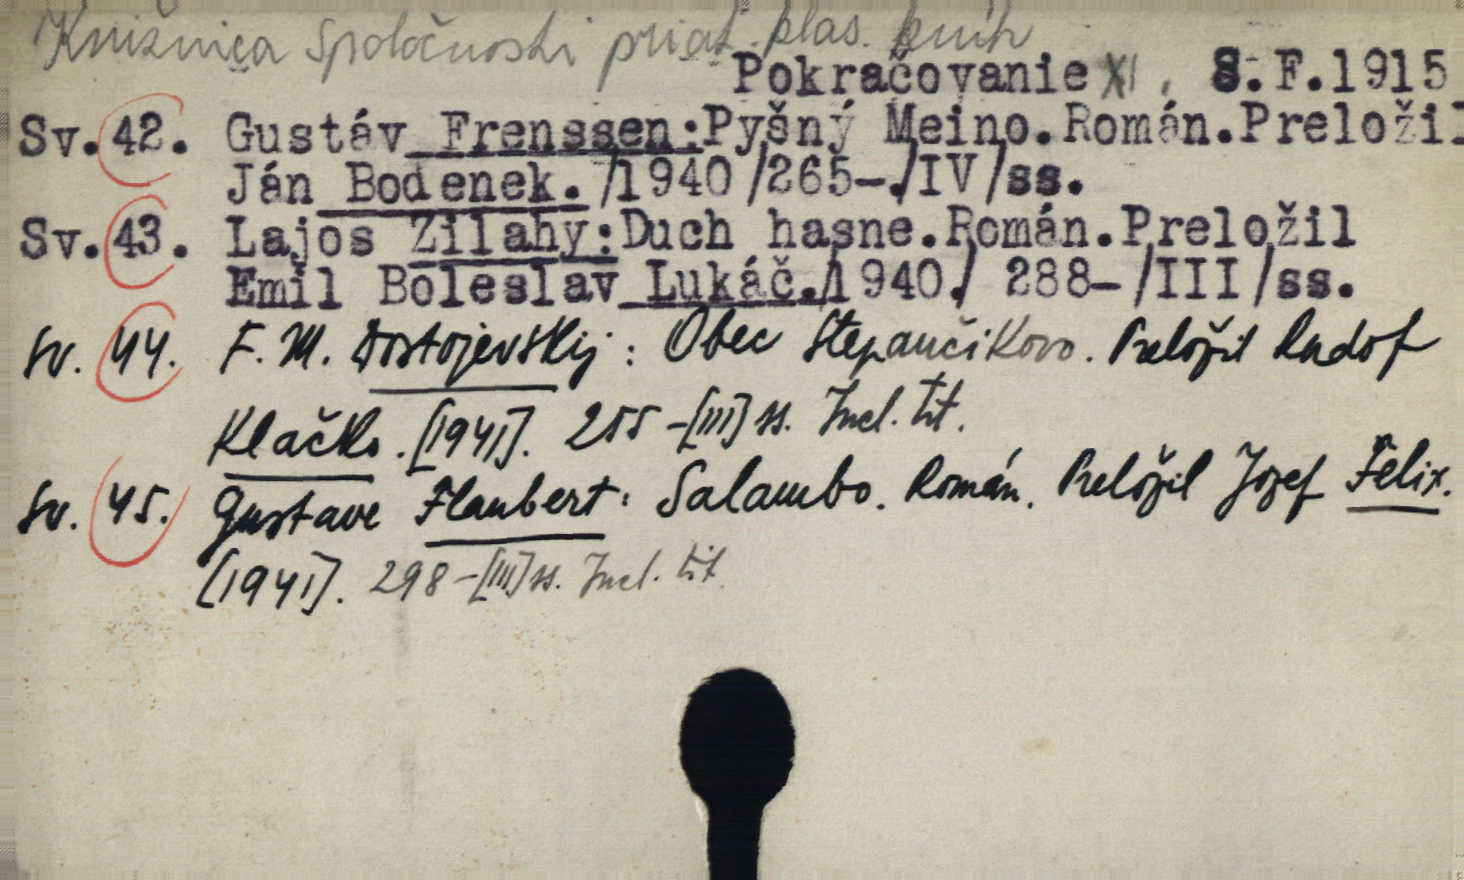 Knižnica Spoločnosti priat. klas. kníh
Pokračovanie XI, S.F.1915
Sv.42. Gustáv Frenssen:Pyšný Meino.Román.Preložil
Ján Bodenek./1940/265-./IV/ss.
Sv.43. Lajos Zilahy:Duch hasne.Román.Preložil
Emil Boleslav Lukáč./1940./ 288-/III/ss.
Sv. 44. F. M. Dostojevskij: Obec Stepančikovo. Preložil Rudof
Klačko. [1941]. 255-[III] ss. Incl. tit.
Sv. 45. Gustave Flaubert: Salambo. Román. Preložil Jozef Felix.
[1941]. 298-[III] ss. Incl. tit.